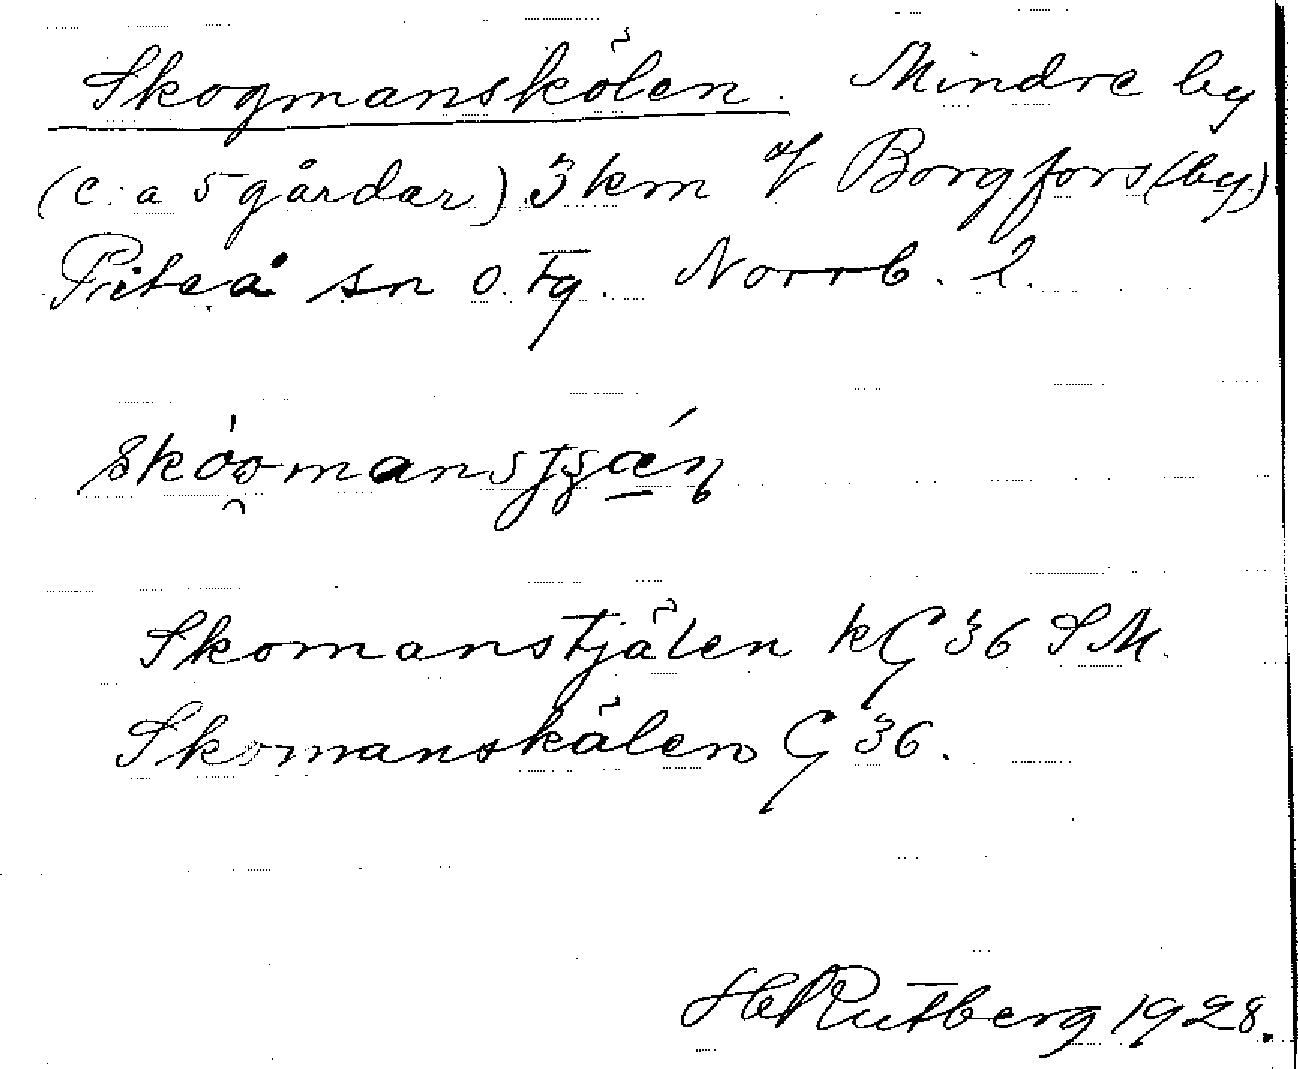 Skogmanskölen. Mindre by
(c:a 5 gårdar) 3 km V Borgfors (by)
Piteå sn o. tg. Norrb. l.
Skomanstjälen kG 36 SM.
Skomanskälen G 36.
H Rutberg 1928.